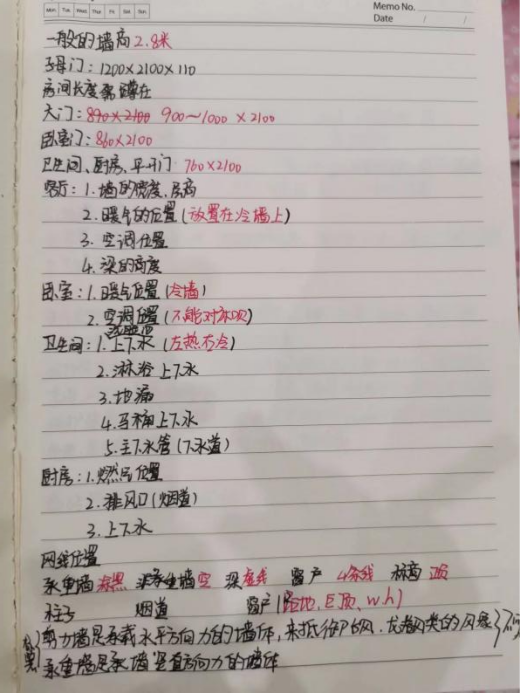 Mon. Tue. Wed. Thu. Fri. Sat. Sun.
Memo No.
Date / /
一般的墙高2.8米
子母门：1200×2100×110
房间长度
大门：890×2100 900～1000 ×2100
卧室门：860×2100
卫生间、厨房、平开门 760×2100
客厅：1.墙的宽度、层高
2.暖气的位置(放置在冷墙上)
3.空调位置
4.梁的高度
卧室：1.暖气位置(冷墙)
2.空调位置(不能对床頭)
卫生间：1.上下水(左热右冷)
2.淋浴上下水
3.地漏
4.马桶上下水
5.主下水管(下水道)
厨房：1.燃气位置
2.排风口(烟道)
3.上下水
网线位置
承重墙 涂黑 非承重墙 空 梁 虚线 窗户 4条线 标高 顶
柱子 烟道 窗户(w.h)
剪力墙是承载水平方向力的墙体，来抵御 的风
承重墙是承墙竖直方向力的墙体